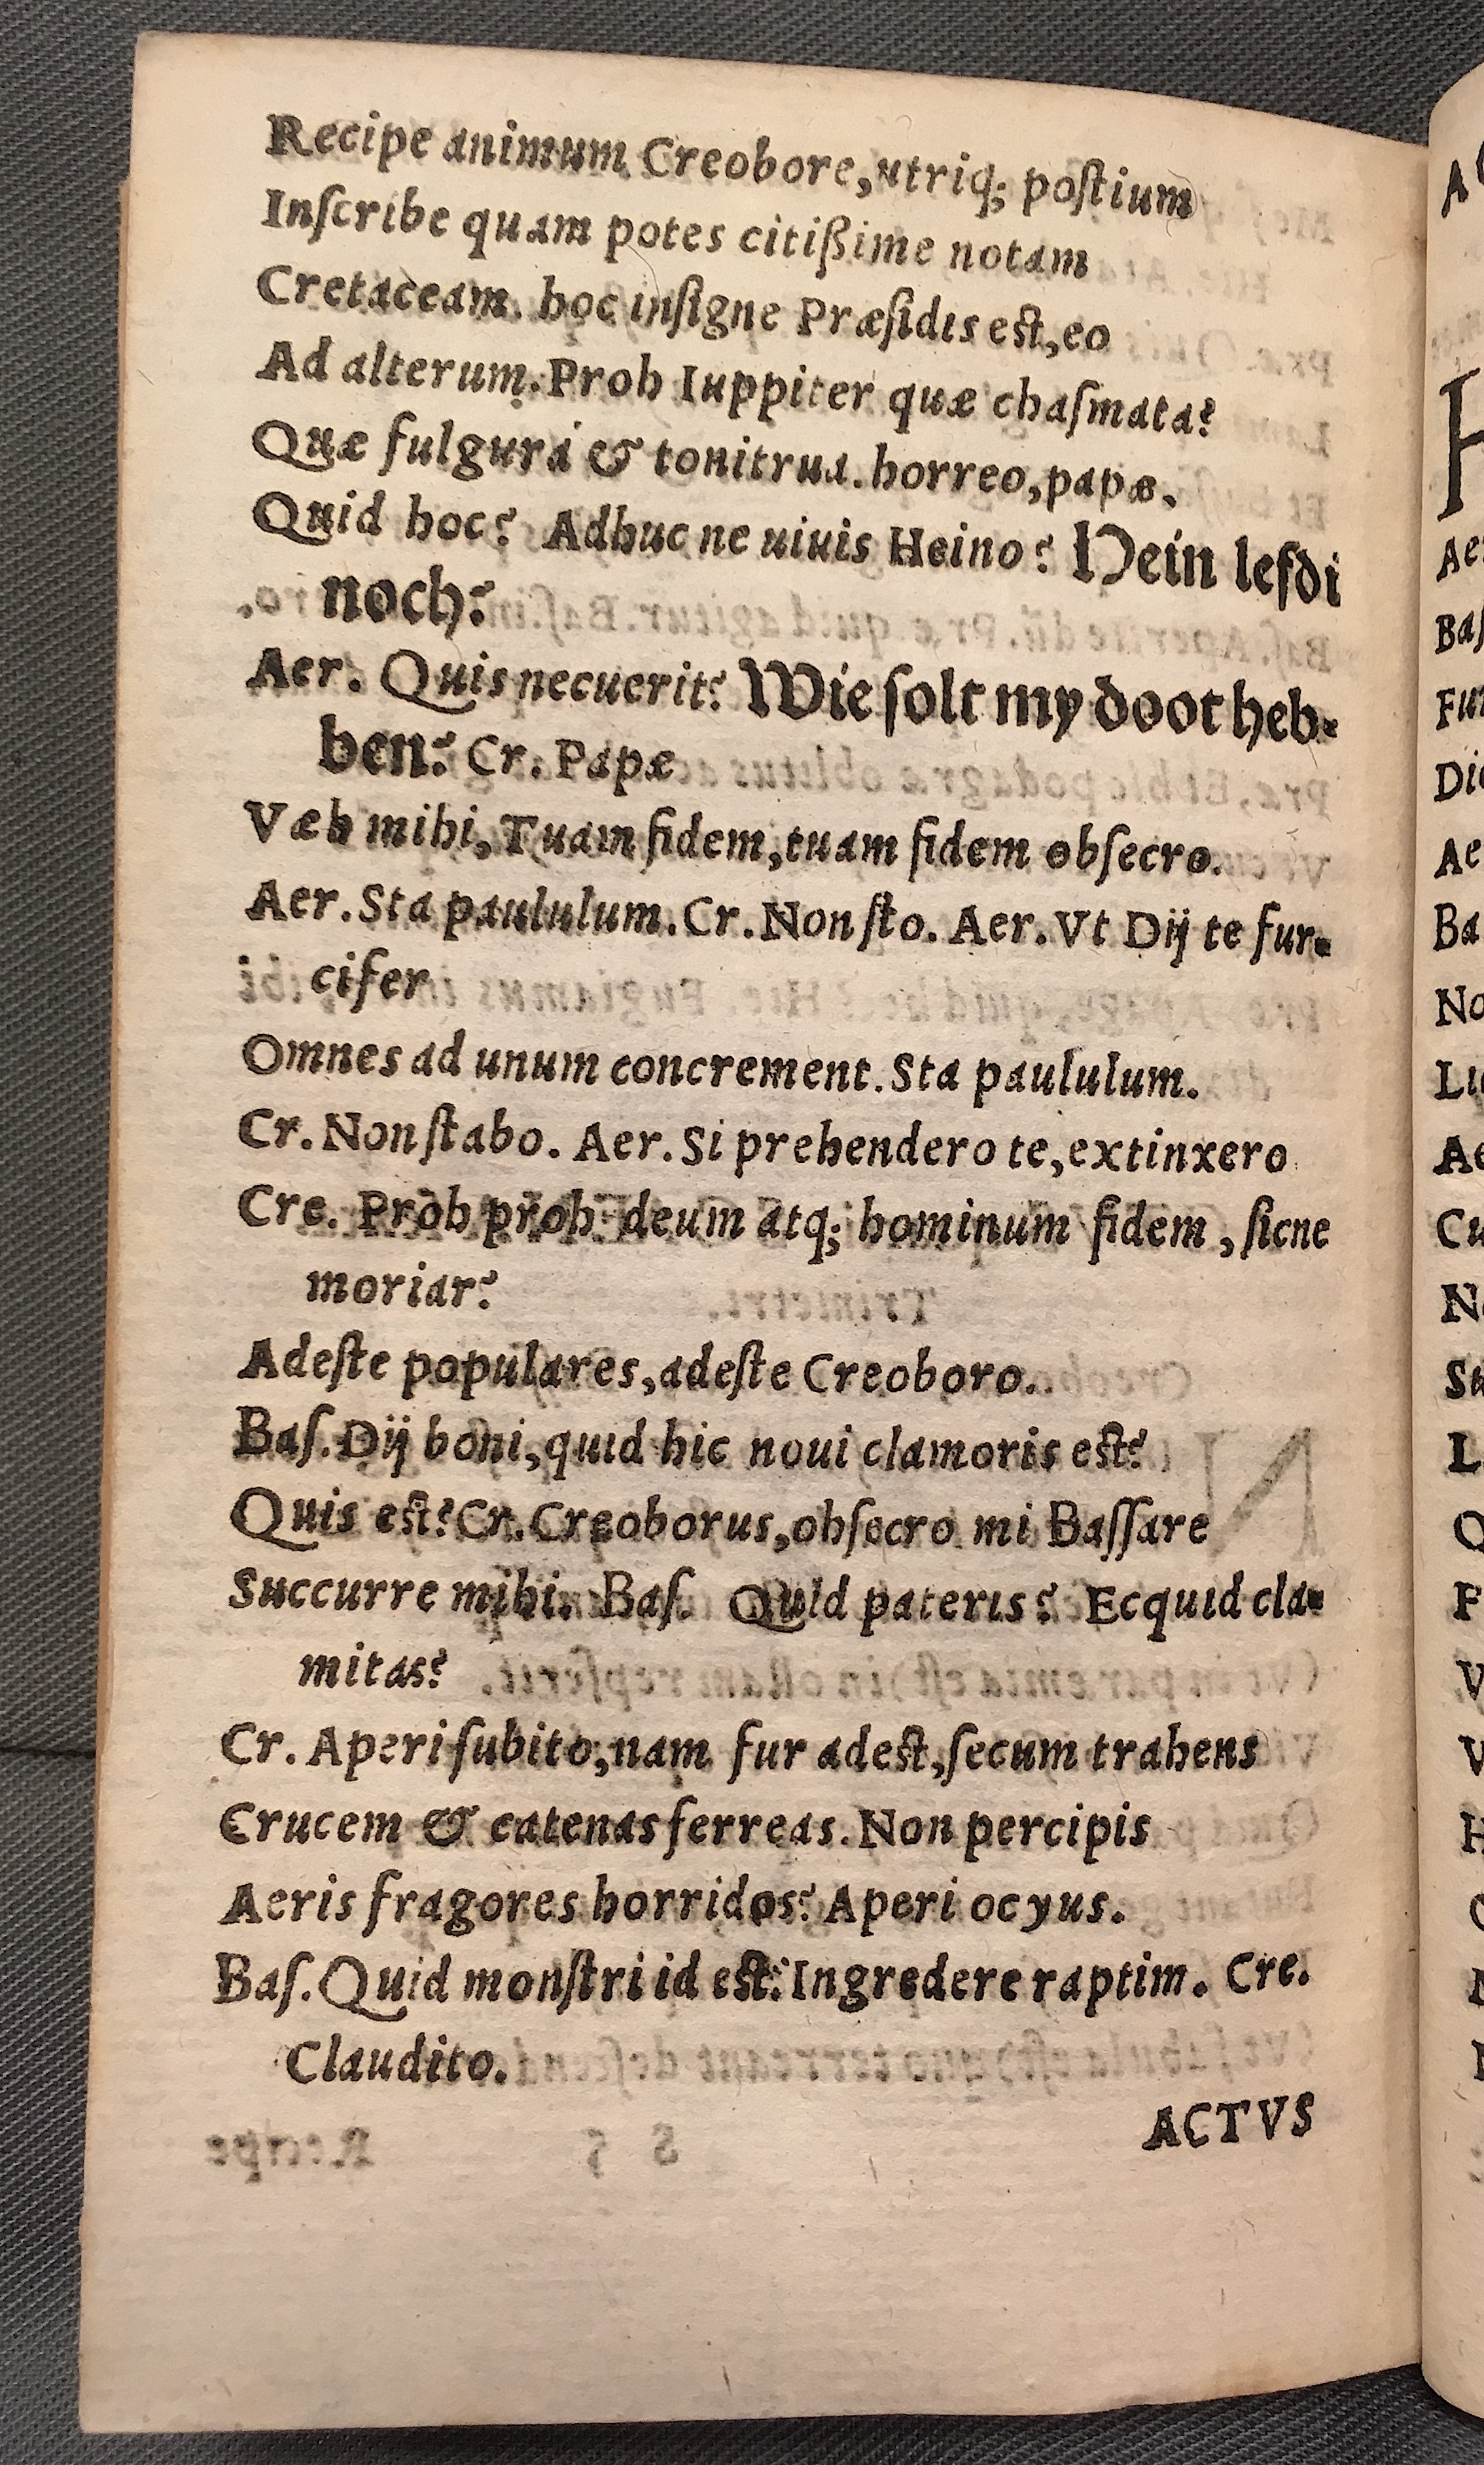 Recipe animum Creobore, utriq; poſtium
Inſcribe quam potes citißime notam
Cretaceam. hoc inſigne Præſidis est, eo
Ad alterum. Proh Iuppiter quæ chaſmata?
Quæ fulgura & tonitrua. horreo, papæ.
Quid hoc? Adhuc ne uiuis Heino? Hein lefdi
noch?
Aer. Quis necuerit? Wie ſolt my doot heb-
ben? Cr. Papæ
Væh mihi, Tuam fidem, tuam fidem obſecro.
Aer. Sta paululum. Cr. Non ſto. Aer. Vt Dij te fur-
cifer
Omnes ad unum concrement. Sta paululum.
Cr. Non ſtabo. Aer. Si prehendero te, extinxero
Cre. Proh proh deum atq; hominum fidem, ſicne
moriar?
Adeſte populares, adeſte Creoboro.
Baſ. Dij boni, quid hic noui clamoris est?
Quis est? Cr. Creoborus, obſecro mi Baſſare
Succurre mihi. Baſ. Quid pateris? Ecquid cla-
mitas?
Cr. Aperi ſubito, nam fur adest, ſecum trahens
Crucem & catenas ferreas. Non percipis
Aeris fragores horridos? Aperi ocyus.
Baſ. Quid monſtri id est? Ingredere raptim. Cre.
Claudito.
ACTVS